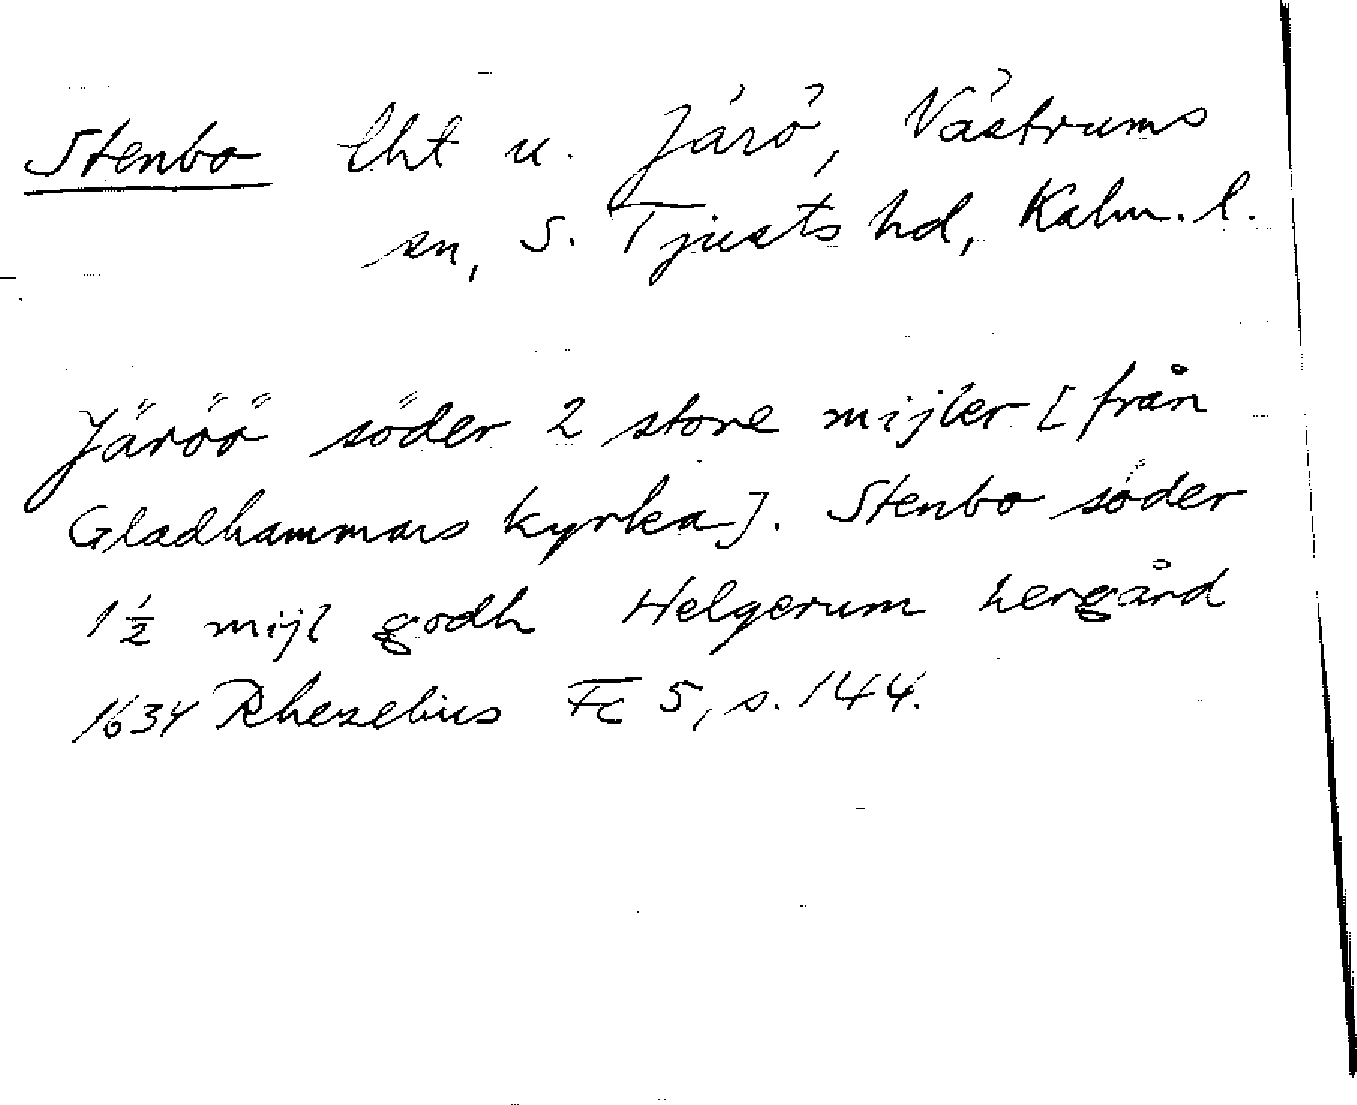 Stenbo lht u. Järö, Västrums
sn, S. Tjusts hd, Kalm. l.
Järöö söder 2 store mijler [från
Gladhammars kyrka]. Stenbo söder
1½ mijl godh Helgerum hergård
1634 Rhezelius Fc 5, s. 144.